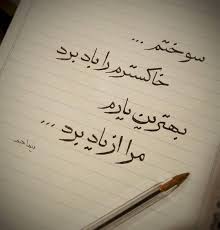 سوختم ...
خاکسترم را باد برد
بهترین یارم
مرا از یاد برد ...